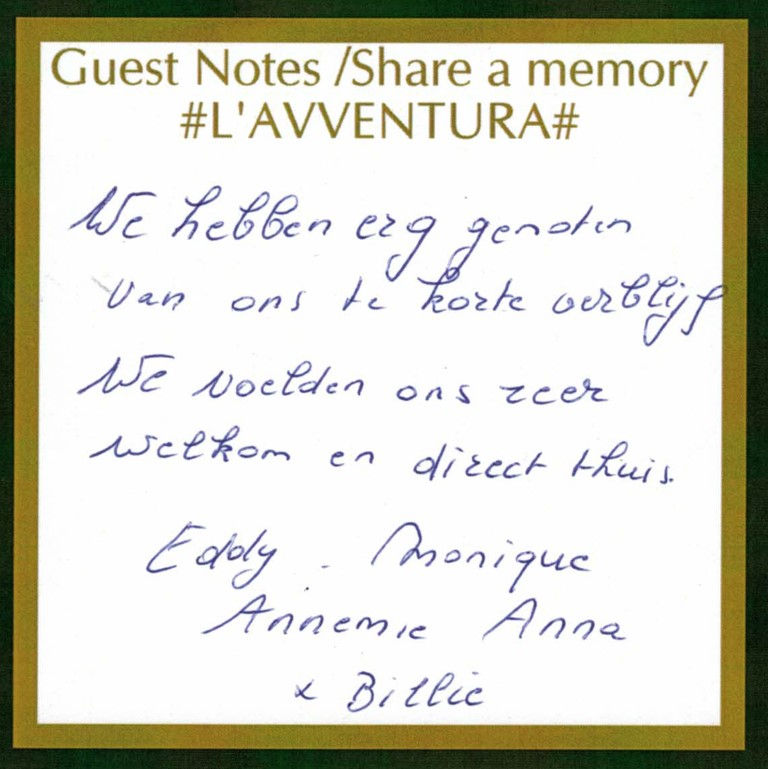 Guest Notes /Share a memory
#L'AVVENTURA#
We hebben erg genoten
van ons te korte verblijf
We voelden ons zeer
welkom en direct thuis.
Eddy - Monique
Annemie Anna
x Billie